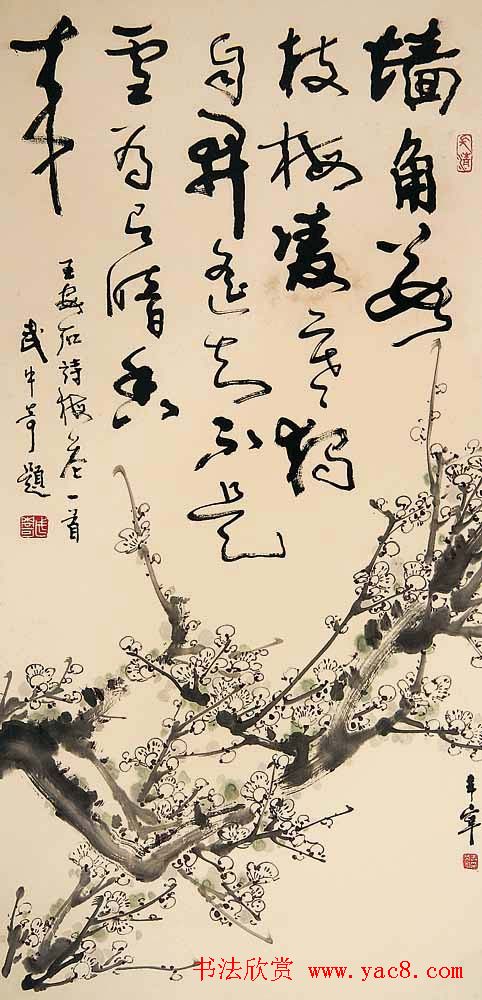 墙角数
枝梅凌寒独
自开遥知不是
雪为有暗香
来
王安石詩梅花一首
武中奇題
书法欣赏 www.yac8.com